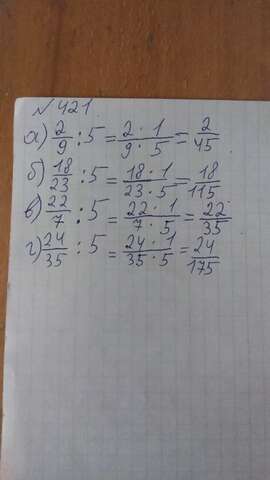 № 421.
а) 2/9 : 5 = 2 · 1 / 9 · 5 = 2/45
б) 18/23 : 5 = 18 · 1 / 23 · 5 = 18/115
в) 22/7 : 5 = 22 · 1 / 7 · 5 = 22/35
г) 24/35 : 5 = 24 · 1 / 35 · 5 = 24/175